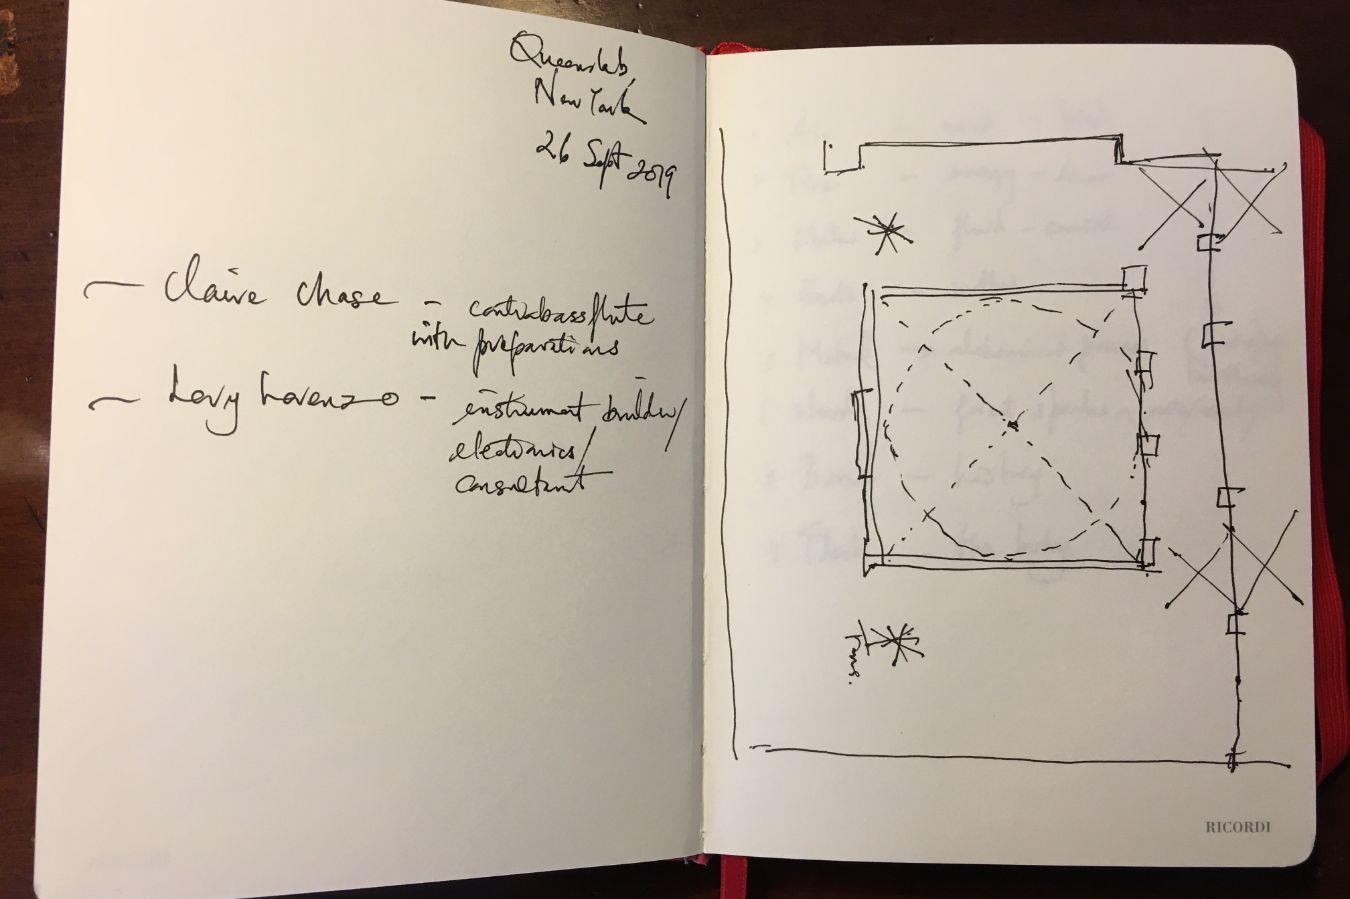 Queenslab,
New York
26 Sept 2019
— Claire Chase — contrabass flute
with preparations
— Levy Lorenzo — instrument builder/
electronics/
consultant
RICORDI